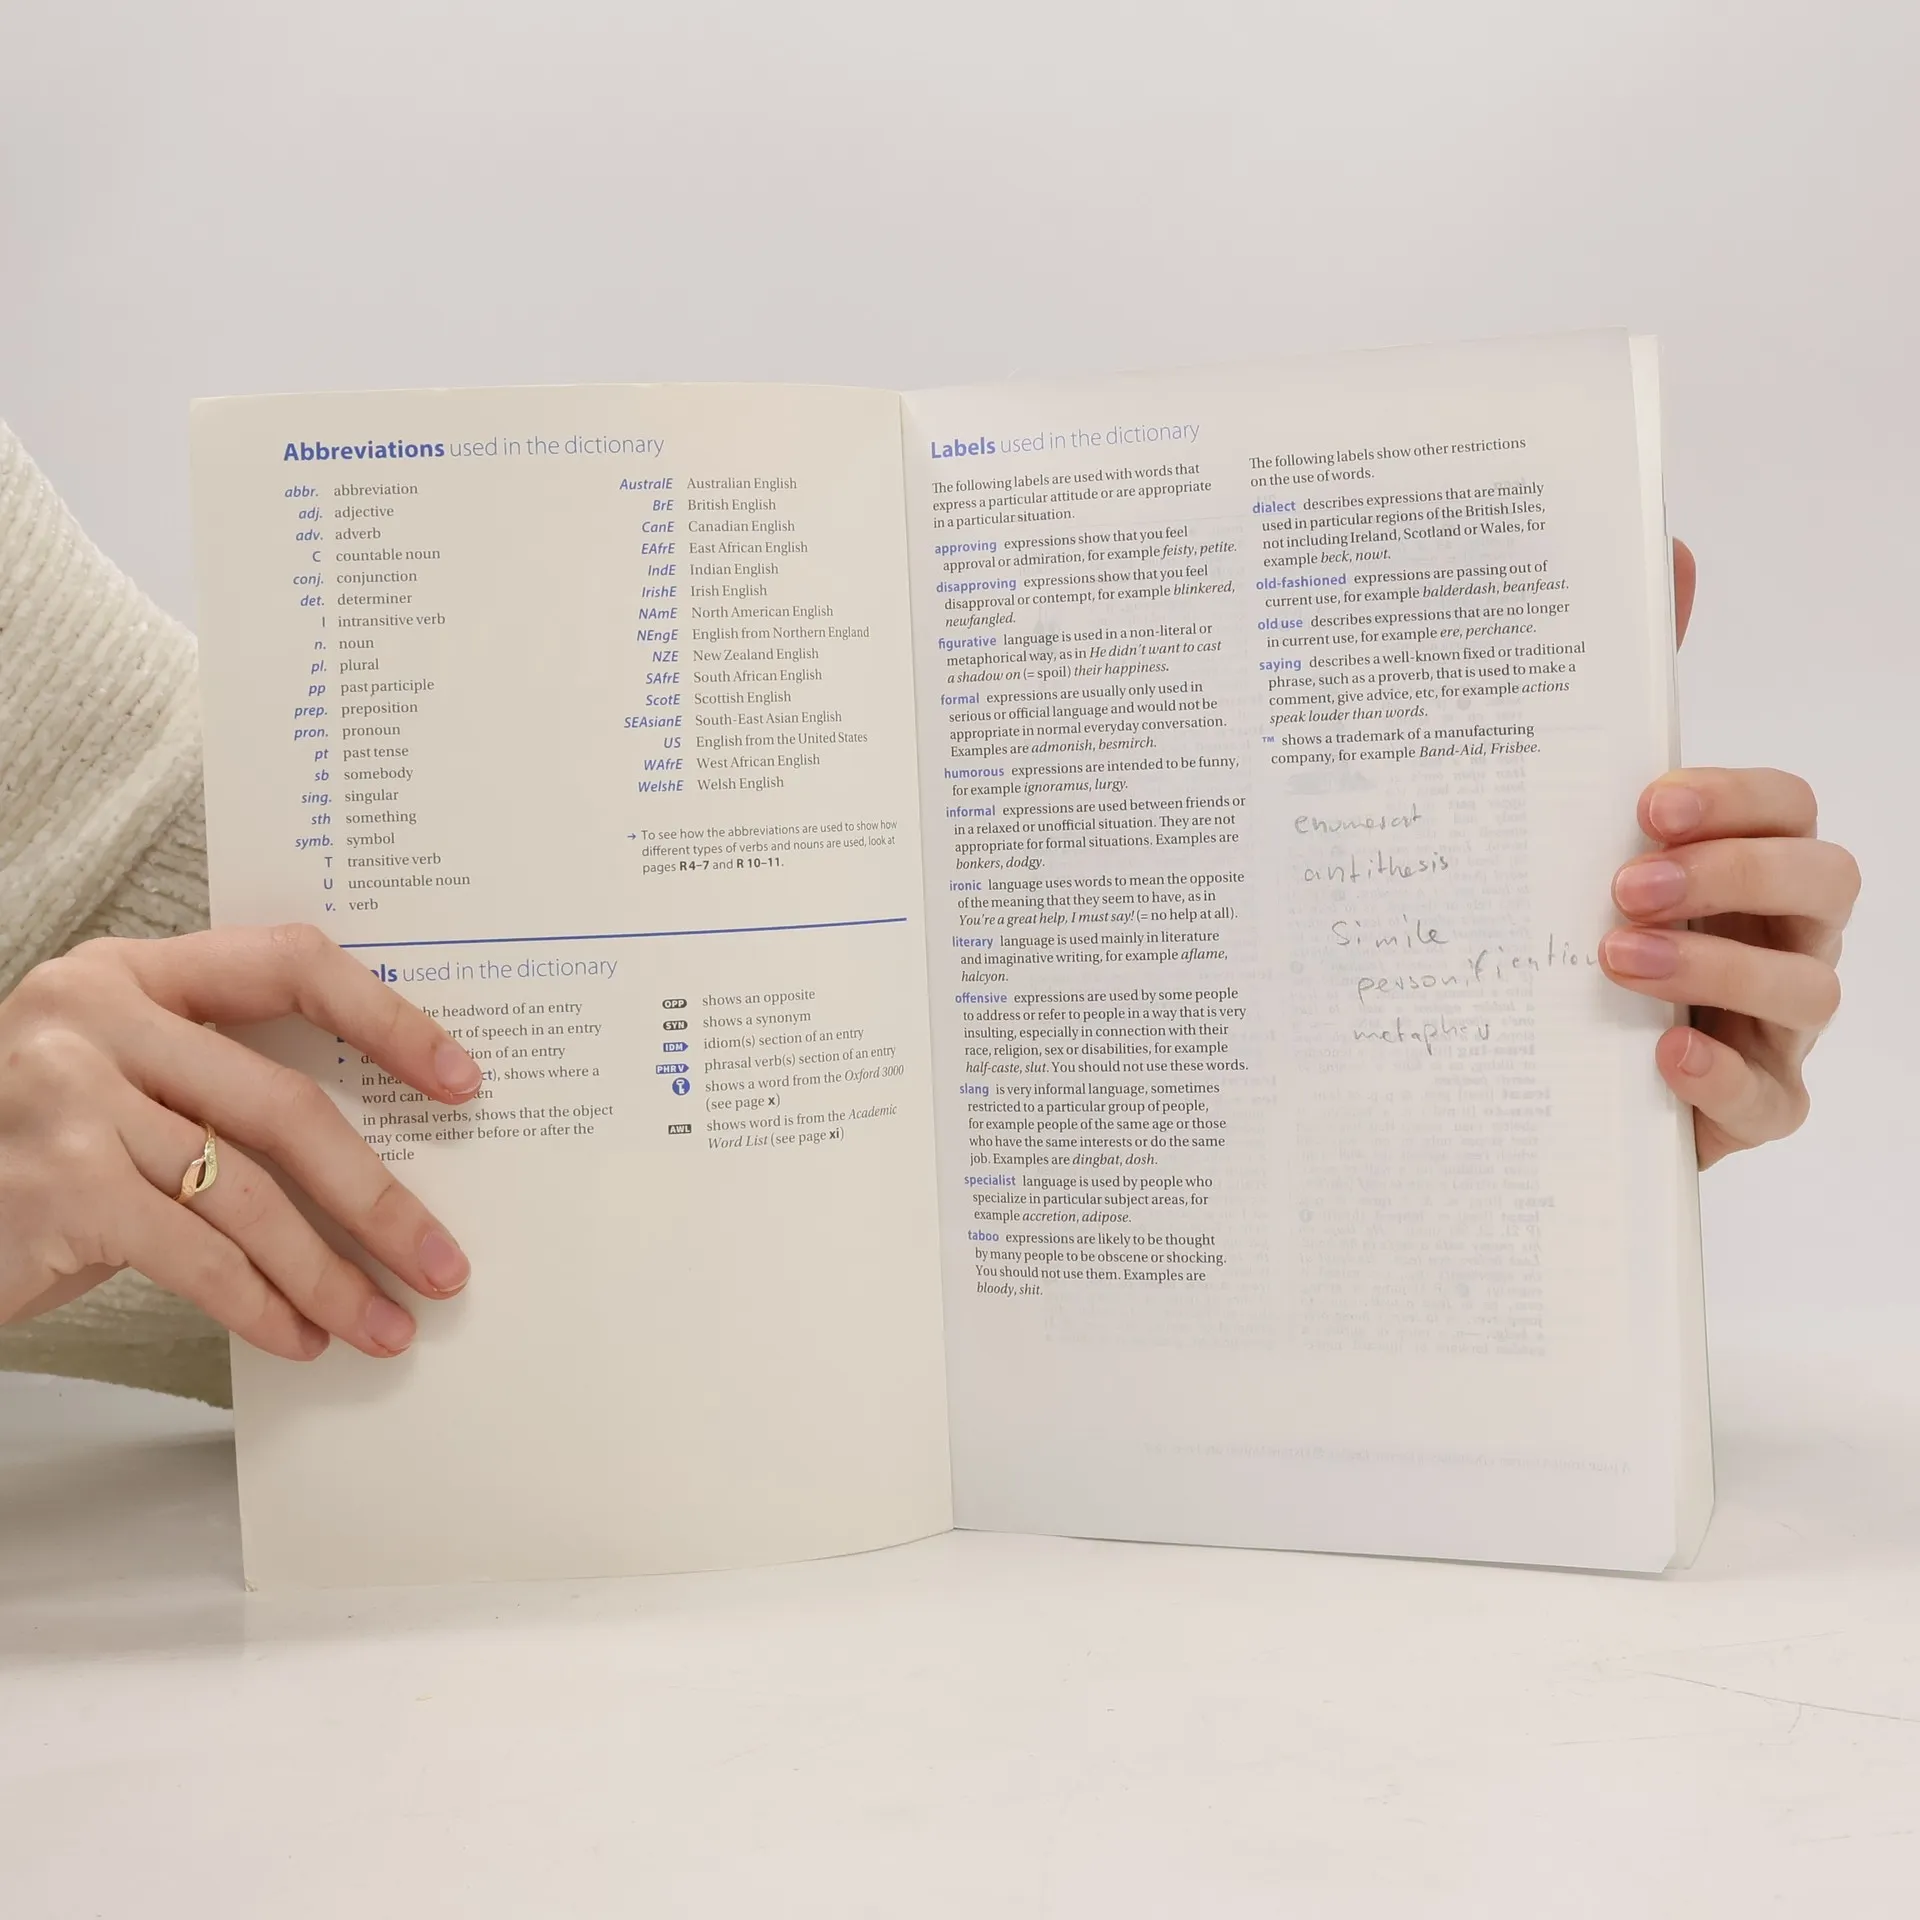 Abbreviations used in the dictionary
abbr. abbreviation
adj. adjective
adv. adverb
C countable noun
conj. conjunction
det. determiner
I intransitive verb
n. noun
pl. plural
pp past participle
prep. preposition
pron. pronoun
pt past tense
sb somebody
sing. singular
sth something
symb. symbol
T transitive verb
U uncountable noun
v. verb
AustralE Australian English
BrE British English
CanE Canadian English
EAfrE East African English
IndE Indian English
IrishE Irish English
NAmE North American English
NEngE English from Northern England
NZE New Zealand English
SAfrE South African English
ScotE Scottish English
SEAsianE South-East Asian English
US English from the United States
WAfrE West African English
WelshE Welsh English
→ To see how the abbreviations are used to show how
different types of verbs and nouns are used, look at
pages R4–7 and R 10–11.
used in the dictionary
headword of an entry
of speech in an entry
of an entry
in shows where a
word can
in phrasal verbs, shows that the object
may come either before or after the
OPP shows an opposite
SYN shows a synonym
IDM idiom(s) section of an entry
PHR V phrasal verb(s) section of an entry
shows a word from the Oxford 3000
(see page x)
AWL shows word is from the Academic
Word List (see page xi)
Labels used in the dictionary
The following labels are used with words that
express a particular attitude or are appropriate
in a particular situation.
approving expressions show that you feel
approval or admiration, for example feisty, petite.
disapproving expressions show that you feel
disapproval or contempt, for example blinkered,
newfangled.
figurative language is used in a non-literal or
metaphorical way, as in He didn't want to cast
a shadow on (= spoil) their happiness.
formal expressions are usually only used in
serious or official language and would not be
appropriate in normal everyday conversation.
Examples are admonish, besmirch.
humorous expressions are intended to be funny,
for example ignoramus, lurgy.
informal expressions are used between friends or
in a relaxed or unofficial situation. They are not
appropriate for formal situations. Examples are
bonkers, dodgy.
ironic language uses words to mean the opposite
of the meaning that they seem to have, as in
You're a great help, I must say! (= no help at all).
literary language is used mainly in literature
and imaginative writing, for example aflame,
halcyon.
offensive expressions are used by some people
to address or refer to people in a way that is very
insulting, especially in connection with their
race, religion, sex or disabilities, for example
half-caste, slut. You should not use these words.
slang is very informal language, sometimes
restricted to a particular group of people,
for example people of the same age or those
who have the same interests or do the same
job. Examples are dingbat, dosh.
specialist language is used by people who
specialize in particular subject areas, for
example accretion, adipose.
taboo expressions are likely to be thought
by many people to be obscene or shocking.
You should not use them. Examples are
bloody, shit.
The following labels show other restrictions
on the use of words.
dialect describes expressions that are mainly
used in particular regions of the British Isles,
not including Ireland, Scotland or Wales, for
example beck, nowt.
old-fashioned expressions are passing out of
current use, for example balderdash, beanfeast.
old use describes expressions that are no longer
in current use, for example ere, perchance.
saying describes a well-known fixed or traditional
phrase, such as a proverb, that is used to make a
comment, give advice, etc, for example actions
speak louder than words.
™ shows a trademark of a manufacturing
company, for example Band-Aid, Frisbee.
antithesis
simile